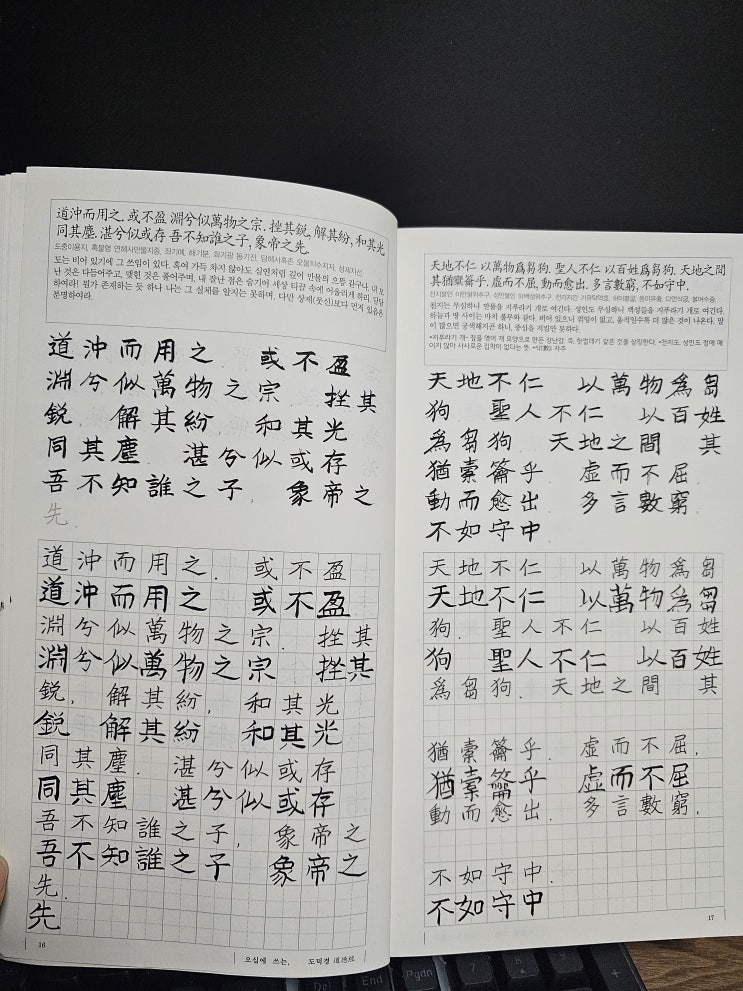 道沖而用之. 或不盈 淵兮似萬物之宗. 挫其銳, 解其紛, 和其光
同其塵. 湛兮似或存 吾不知誰之子, 象帝之先.
도충이용지, 혹불영 연혜사만물지종, 좌기예, 해기분, 화기광 동기진, 담혜사혹존 오불지수지자, 상제지선.
도는 비어 있기에 그 쓰임이 있다. 혹여 가득 차지 않아도 심연처럼 깊어 만물의 으뜸 같구나. 내 모
난 것은 다듬어주고, 맺힌 것은 풀어주며, 내 잘난 점은 숨기어 세상 티끌 속에 어울리게 하리. 담담
하여라! 뭔가 존재하는 듯 하나 나는 그 실체를 알지는 못하며, 다만 상제(옥신)보다 먼저 있음은
분명하여라.
道沖而用之. 或不盈
淵兮似萬物之宗. 挫其
銳, 解其紛, 和其光
同其塵. 湛兮似或存
吾不知誰之子, 象帝之
先.
道沖而用之. 或不盈
道沖而用之 或不盈
淵兮似萬物之宗. 挫其
淵兮似萬物之宗 挫其
銳, 解其紛, 和其光
銳 解其紛 和其光
同其塵. 湛兮似或存
同其塵 湛兮似或存
吾不知誰之子, 象帝之
吾不知誰之子 象帝之
先.
先
16
오십에 쓰는, 도덕경 道德經
天地不仁 以萬物爲芻狗. 聖人不仁 以百姓爲芻狗. 天地之間
其猶橐籥乎. 虛而不屈, 動而愈出. 多言數窮, 不如守中.
천지불인 이만물위추구, 성인불인 이백성위추구, 천지지간 기유탁약호, 허이불굴, 동이유출, 다언삭궁, 불여수중.
천지는 무심하니 만물을 지푸라기 개로 여긴다. 성인도 무심하니 백성들을 지푸라기 개로 여긴다.
하늘과 땅 사이는 마치 풀무와 같다. 비어 있으니 쥐임이 없고, 움직일수록 더 많은 것이 나온다. 말
이 많으면 궁색해지곤 하니, 중심을 지킴만 못하다.
*지푸라기 개- 짚을 엮어 개 모양으로 만든 장난감. 즉, 헛껍데기 같은 것을 상징한다. *천지도, 성인도 정에 매
이지 않아 사사로운 집착이 없다는 뜻
天地不仁 以萬物爲芻
狗. 聖人不仁 以百姓
爲芻狗. 天地之間 其
猶橐籥乎. 虛而不屈,
動而愈出. 多言數窮,
不如守中.
天地不仁 以萬物爲芻
天地不仁 以萬物爲芻
狗. 聖人不仁 以百姓
狗 聖人不仁 以百姓
爲芻狗. 天地之間 其
猶橐籥乎. 虛而不屈,
猶橐籥乎 虛而不屈
動而愈出. 多言數窮,
不如守中.
不如守中
17
Del
End
PgDn
7